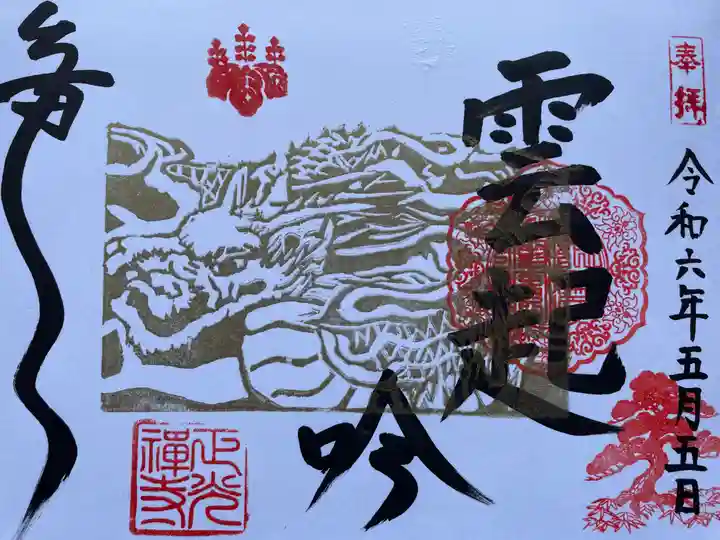 奉拝
令和六年五月五日
雲起
吟
龍
正光
禪寺